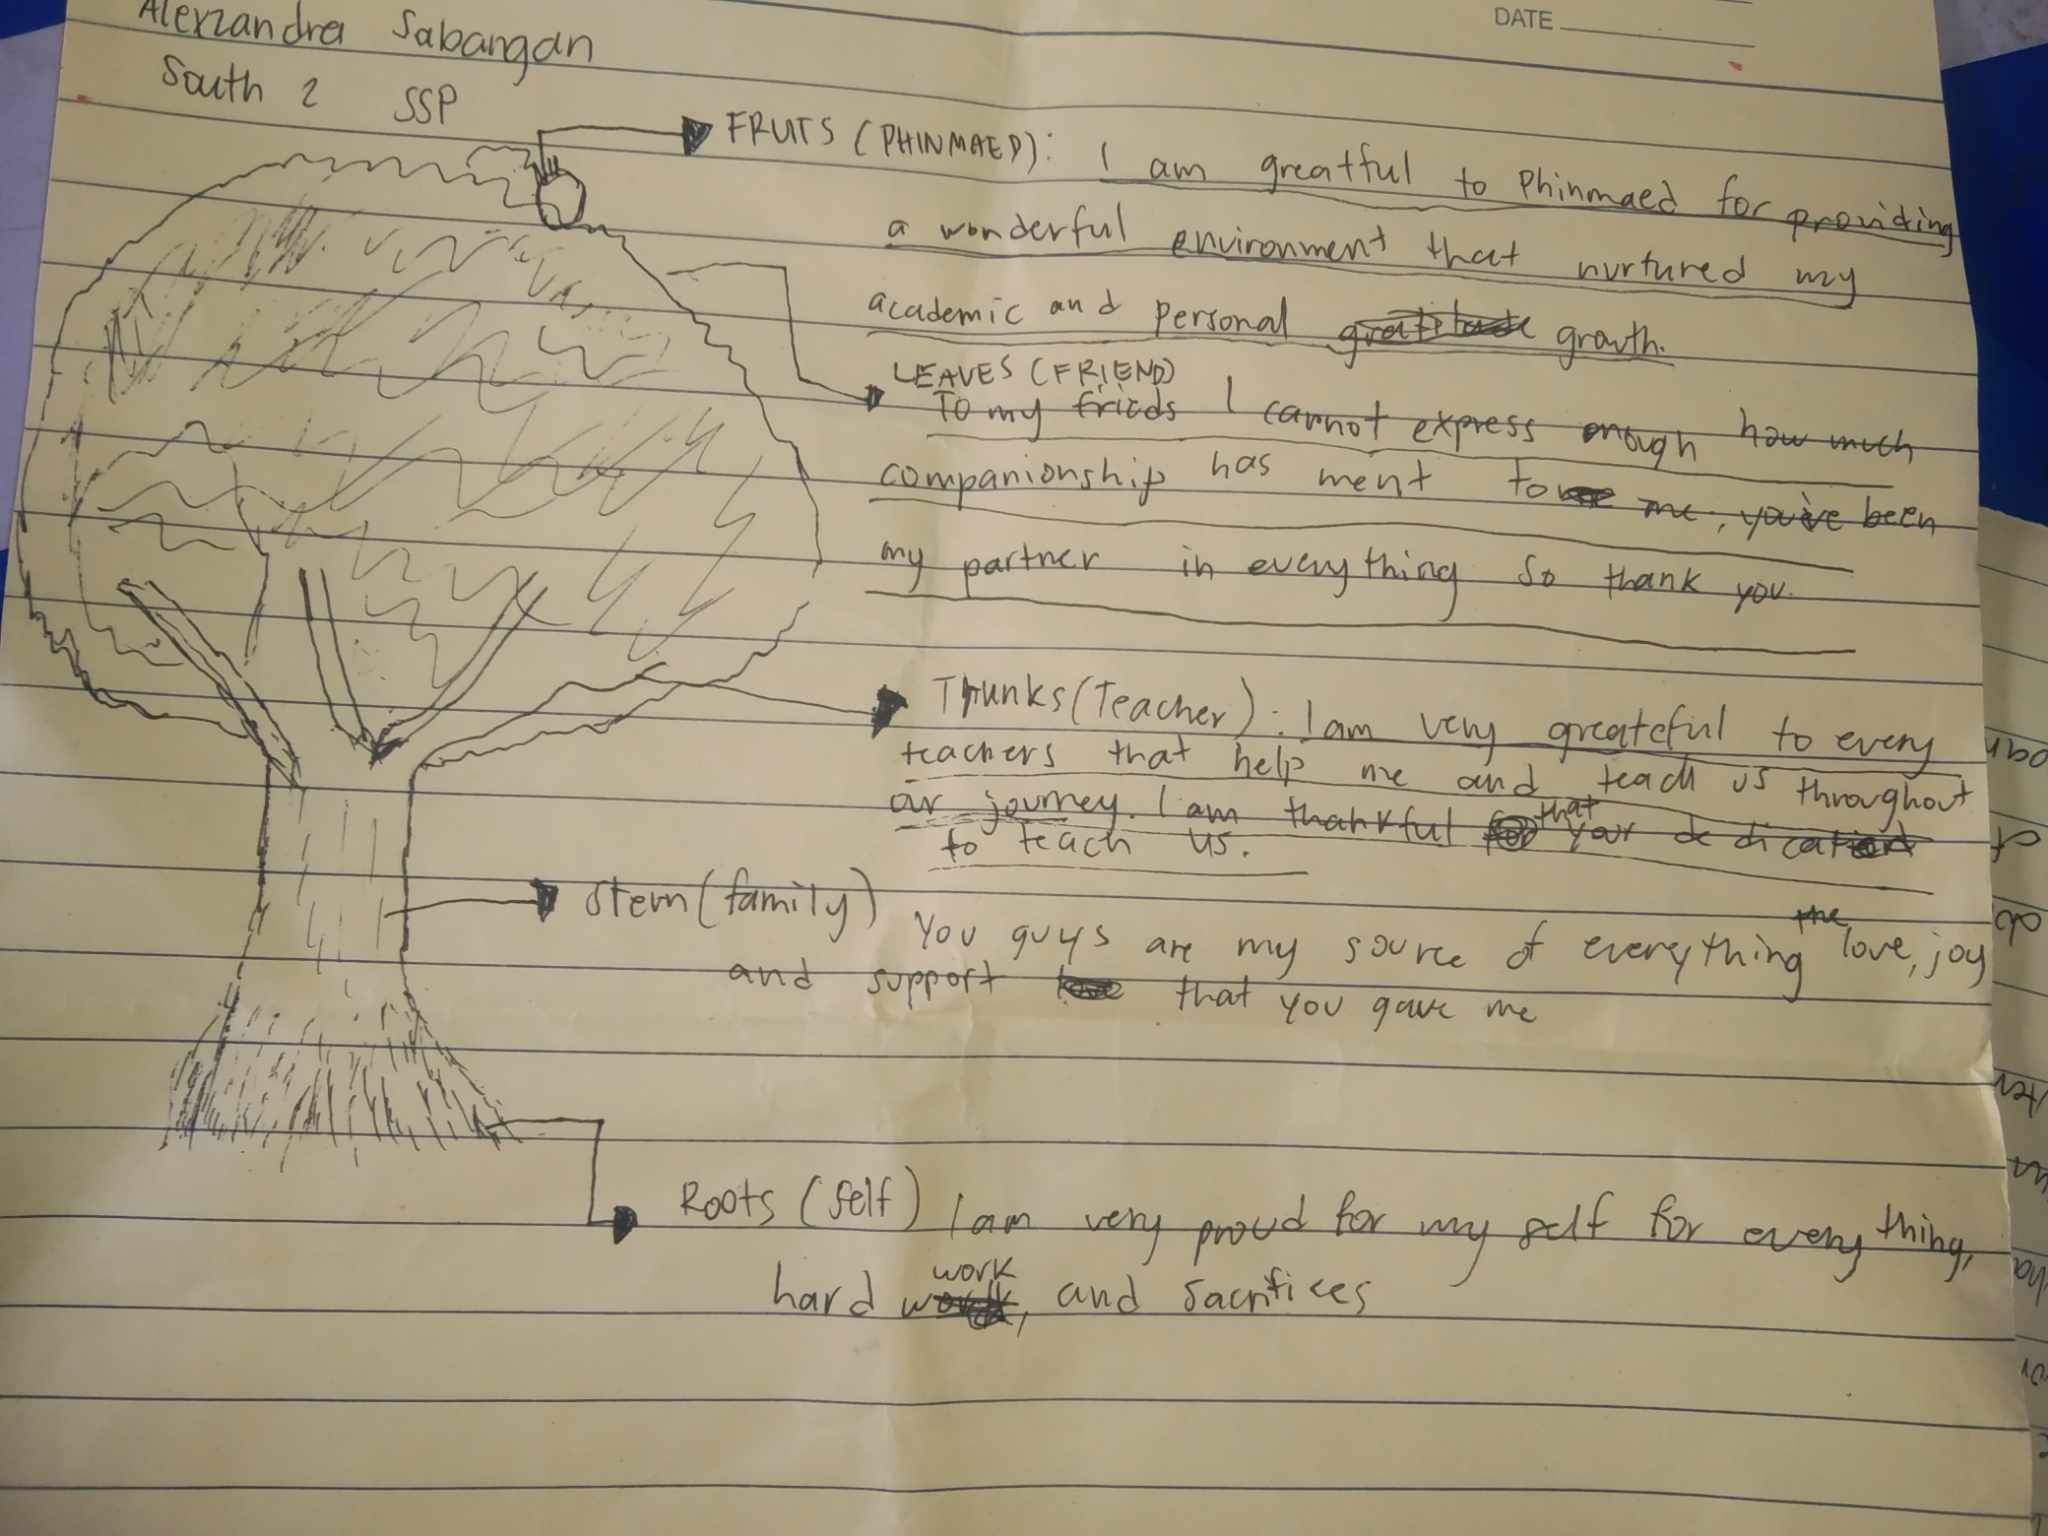 DATE
Alexzandra Sabangan
South 2 SSP
FRUITS (PHINMAED): I am greatful to Phinmaed for providing
a wonderful environment that nurtured my
academic and personal growth.
LEAVES (FRIEND)
To my frieds I cannot express enough how much
companionship has ment to me, you've been
my partner in everything so thank you.
Trunks (Teacher): I am very greateful to every
teachers that help me and teach us throughout
our journey. I am thankful that your dedication
to teach us.
Stem (family) You guys are my source of everything the love, joy
and support that you gave me
Roots (self) I am very proud for my self for every thing,
hard work, and sacrifices